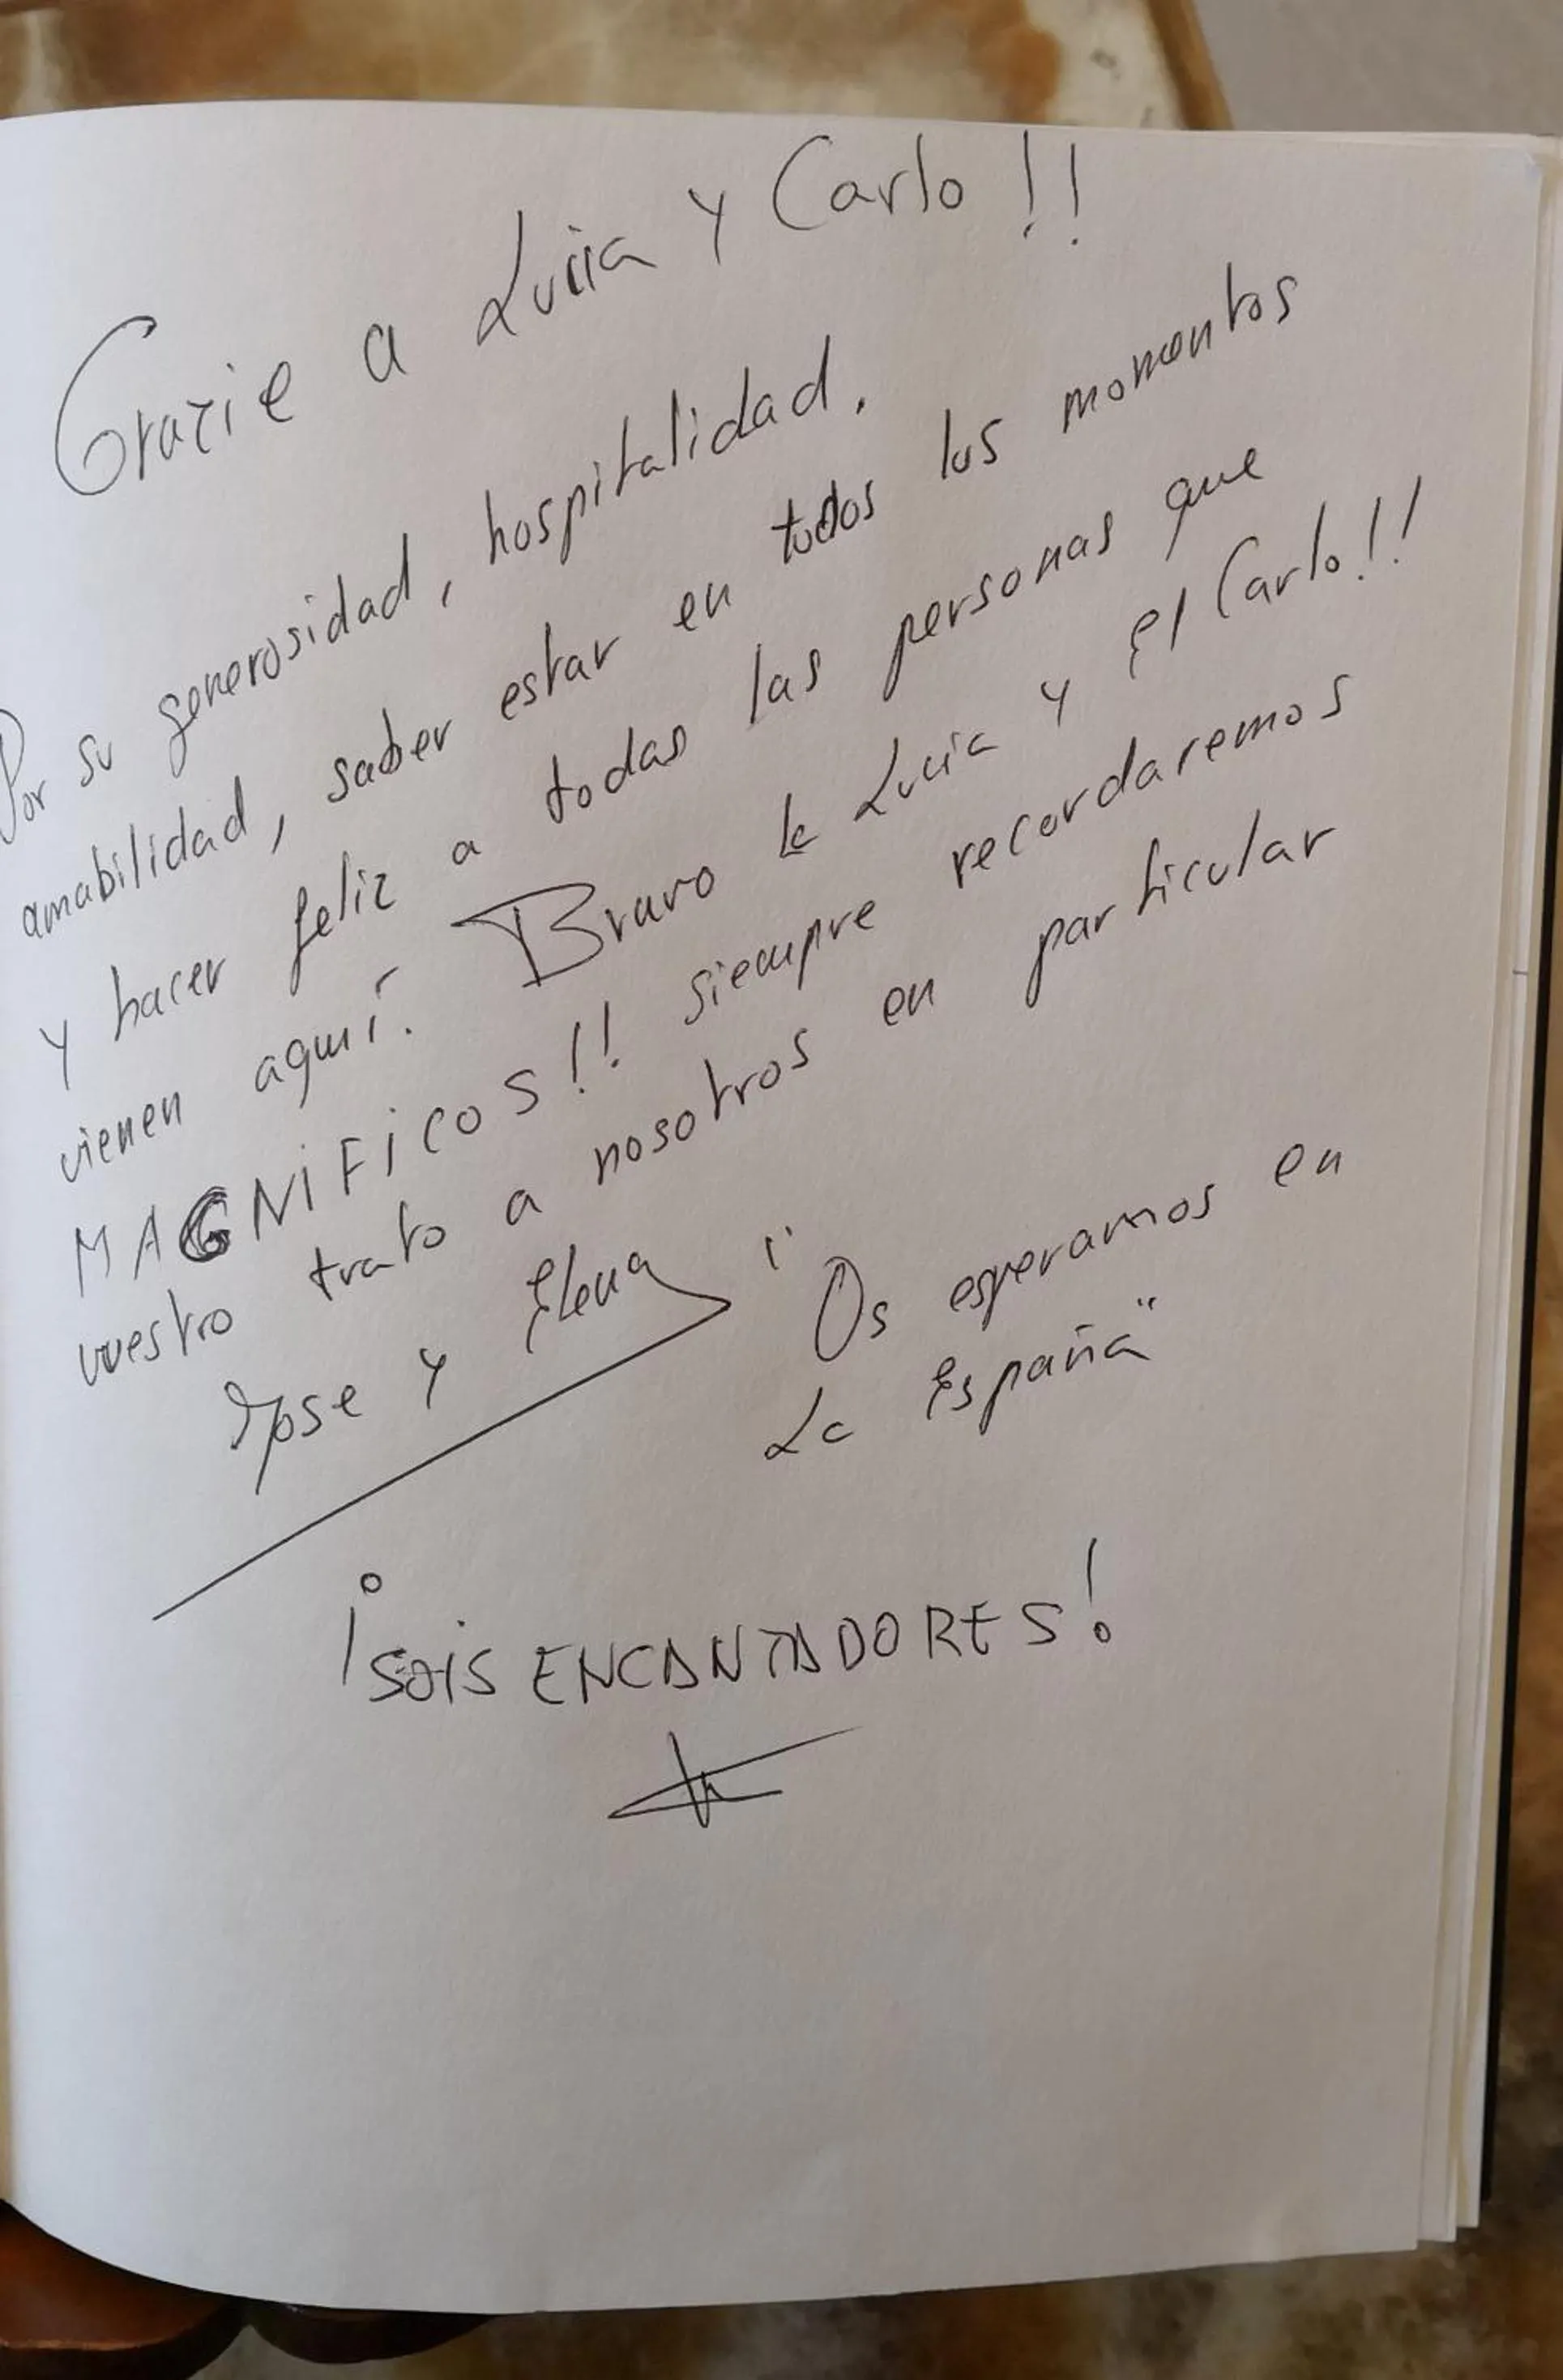 Grazie a Lucia y Carlo !!
Por su generosidad, hospitalidad,
amabilidad, saber estar en todos los momentos
y hacer feliz a todas las personas que
vienen aquí. Bravo la Lucia y el Carlo!!
MAGNIFICOS!! siempre recordaremos
vuestro trato a nosotros en particular
Jose y Elena
"Os esperamos en
La España"
¡SOIS ENCANTADORES!